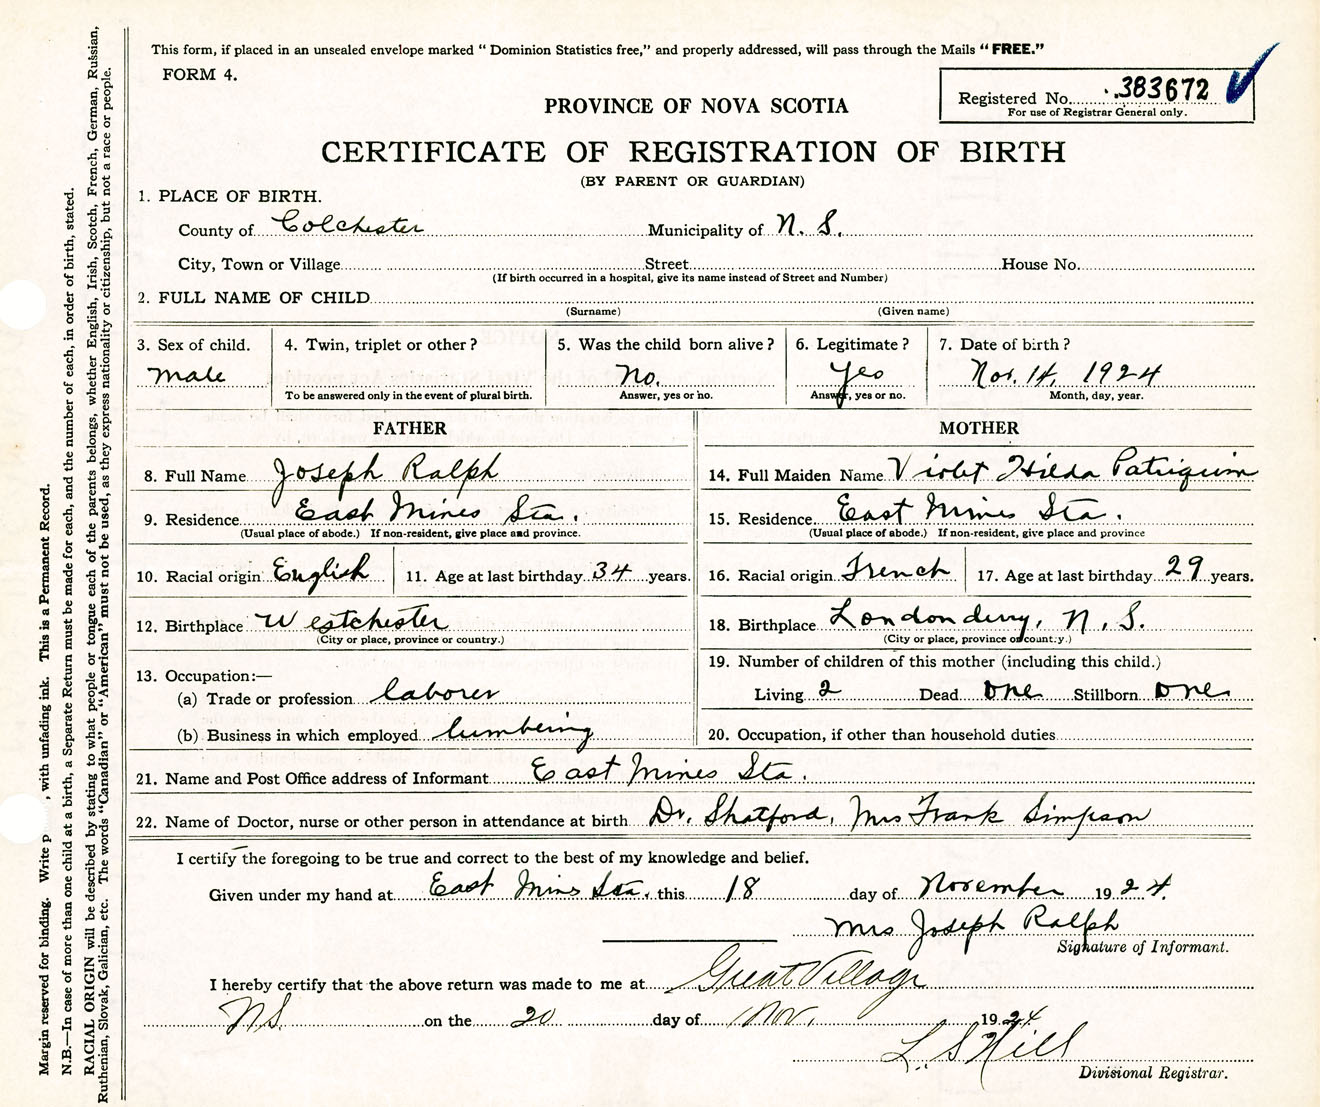 This form, if placed in an unsealed envelope marked “ Dominion Statistics free,” and properly addressed, will pass through the Mails “ FREE.”
FORM 4.
Registered No. 383672
For use of Registrar General only.
PROVINCE OF NOVA SCOTIA
CERTIFICATE OF REGISTRATION OF BIRTH
(BY PARENT OR GUARDIAN)
1. PLACE OF BIRTH.
County of Colchester Municipality of N. S.
City, Town or Village Street House No.
(If birth occurred in a hospital, give its name instead of Street and Number)
2. FULL NAME OF CHILD
(Surname) (Given name)
3. Sex of child. 4. Twin, triplet or other ? 5. Was the child born alive ? 6. Legitimate ? 7. Date of birth ?
Male No. Yes Nov. 14, 1924
To be answered only in the event of plural birth. Answer, yes or no. Answer, yes or no. Month, day, year.
FATHER MOTHER
8. Full Name Joseph Ralph 14. Full Maiden Name Violet Hilda Patriquin
9. Residence East Mines Sta. 15. Residence East Mines Sta.
(Usual place of abode.) If non-resident, give place and province. (Usual place of abode.) If non-resident, give place and province
10. Racial origin English 11. Age at last birthday 34 years. 16. Racial origin French 17. Age at last birthday 29 years.
12. Birthplace Westchester 18. Birthplace Londonderry, N. S.
(City or place, province or country.) (City or place, province or country.)
13. Occupation:— 19. Number of children of this mother (including this child.)
(a) Trade or profession laborer Living 2 Dead one Stillborn one
(b) Business in which employed lumbering 20. Occupation, if other than household duties
21. Name and Post Office address of Informant East Mines Sta.
22. Name of Doctor, nurse or other person in attendance at birth Dr. Shatford, Mrs Frank Simpson
I certify the foregoing to be true and correct to the best of my knowledge and belief.
Given under my hand at East Mins Sta. this 18 day of November 1924.
Mrs Joseph Ralph
Signature of Informant.
I hereby certify that the above return was made to me at Great Village
NS. on the 20 day of Nov. 1924
L. S Hill
Divisional Registrar.
Margin reserved for binding. Write p , with unfading ink. This is a Permanent Record.
N.B.—In case of more than one child at a birth, a Separate Return must be made for each, and the number of each, in order of birth, stated.
RACIAL ORIGIN will be described by stating to what people or tongue each of the parents belongs, whether English, Irish, Scotch, French, German, Russian,
Ruthenian, Slovak, Galician, etc. The words “Canadian” or “American” must not be used, as they express nationality or citizenship, but not a race or people.